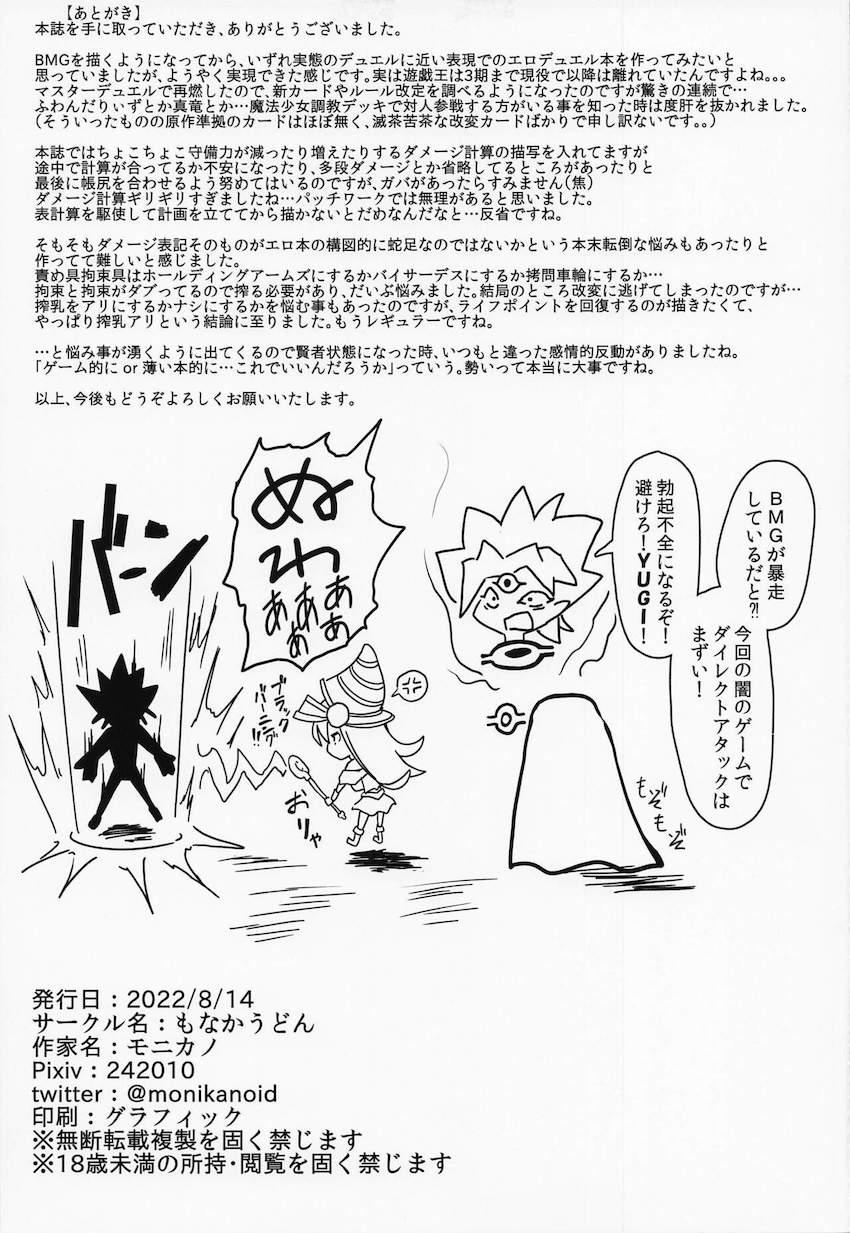 【あとがき】
本誌を手に取っていただき、ありがとうございました。
BMGを描くようになってから、いずれ実態のデュエルに近い表現でのエロデュエル本を作ってみたいと
思っていましたが、ようやく実現できた感じです。実は遊戯王は3期まで現役で以降は離れていたんですよね。。。
マスターデュエルで再燃したので、新カードやルール改定を調べるようになったのですが驚きの連続で…
ふわんだりぃずとか真竜とか…魔法少女調教デッキで対人参戦する方がいる事を知った時は度肝を抜かれました。
（そういったものの原作準拠のカードはほぼ無く、滅茶苦茶な改変カードばかりで申し訳ないです。。）
本誌ではちょこちょこ守備力が減ったり増えたりするダメージ計算の描写を入れてますが
途中で計算が合ってるか不安になったり、多段ダメージとか省略してるところがあったりと
最後に帳尻を合わせるよう努めてはいるのですが、ガバがあったらすみません（焦）
ダメージ計算ギリギリすぎましたね…パッチワークでは無理があると思いました。
表計算を駆使して計画を立ててから描かないとだめなんだなと…反省ですね。
そもそもダメージ表記そのものがエロ本の構図的に蛇足なのではないかという本末転倒な悩みもあったりと
作ってて難しいと感じました。
責め具拘束具はホールディングアームズにするかバイサーデスにするか拷問車輪にするか…
拘束と拘束がダブってるので搾る必要があり、だいぶ悩みました。結局のところ改変に逃げてしまったのですが…
搾乳をアリにするかナシにするかを悩む事もあったのですが、ライフポイントを回復するのが描きたくて、
やっぱり搾乳アリという結論に至りました。もうレギュラーですね。
…と悩み事が湧くように出てくるので賢者状態になった時、いつもと違った感情的反動がありましたね。
「ゲーム的に or 薄い本的に…これでいいんだろうか」っていう。勢いって本当に大事ですね。
以上、今後もどうぞよろしくお願いいたします。
BMGが暴走
しているだと?!
今回の闇のゲームで
ダイレクトアタックは
まずい！
勃起不全になるぞ！
避けろ！YUGI！
もぞもぞ
ぬわぁぁぁぁぁ
ブラック
バーニング!!
おりゃ
バーン
発行日：2022/8/14
サークル名：もなかうどん
作家名：モニカノ
Pixiv：242010
twitter：@monikanoid
印刷：グラフィック
※無断転載複製を固く禁じます
※18歳未満の所持・閲覧を固く禁じます